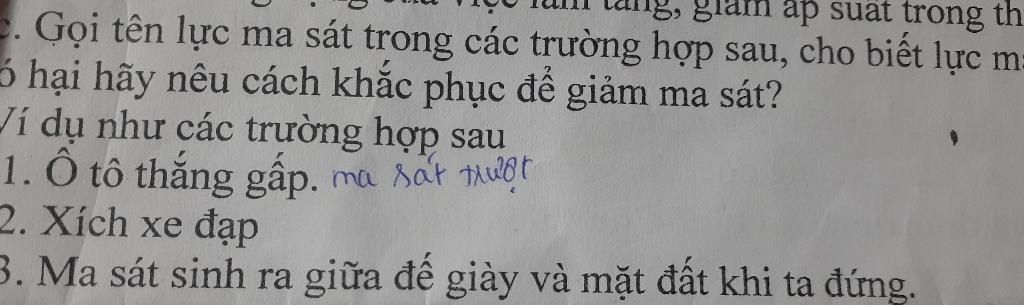 của việc làm tăng, giảm áp suất trong
c. Gọi tên lực ma sát trong các trường hợp sau, cho biết lực
hại hãy nêu cách khắc phục để giảm ma sát?
Ví dụ như các trường hợp sau
1. Ô tô thắng gấp. ma sát trượt
2. Xích xe đạp
3. Ma sát sinh ra giữa đế giày và mặt đất khi ta đứng.